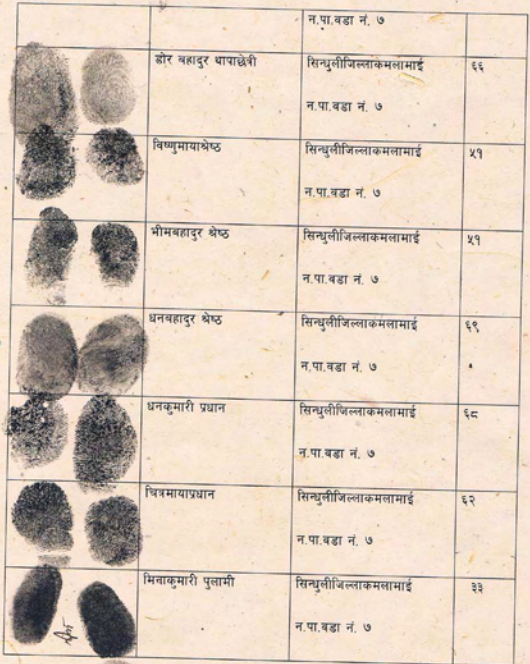 न.पा.वडा नं. ७
डोर बहादुर थापाछेत्री
सिन्धुलीजिल्लाकमलामाई
६६
न.पा.वडा नं. ७
विष्णुमायाश्रेष्ठ
सिन्धुलीजिल्लाकमलामाई
५१
न.पा.वडा नं. ७
भीमबहादुर श्रेष्ठ
सिन्धुलीजिल्लाकमलामाई
५१
न.पा.वडा नं. ७
धनबहादुर श्रेष्ठ
सिन्धुलीजिल्लाकमलामाई
६९
न.पा.वडा नं. ७
धनकुमारी प्रधान
सिन्धुलीजिल्लाकमलामाई
६८
न.पा.वडा नं. ७
चित्रमायाप्रधान
सिन्धुलीजिल्लाकमलामाई
६२
न.पा.वडा नं. ७
मिनाकुमारी पुलामी
सिन्धुलीजिल्लाकमलामाई
३३
न.पा.वडा नं. ७